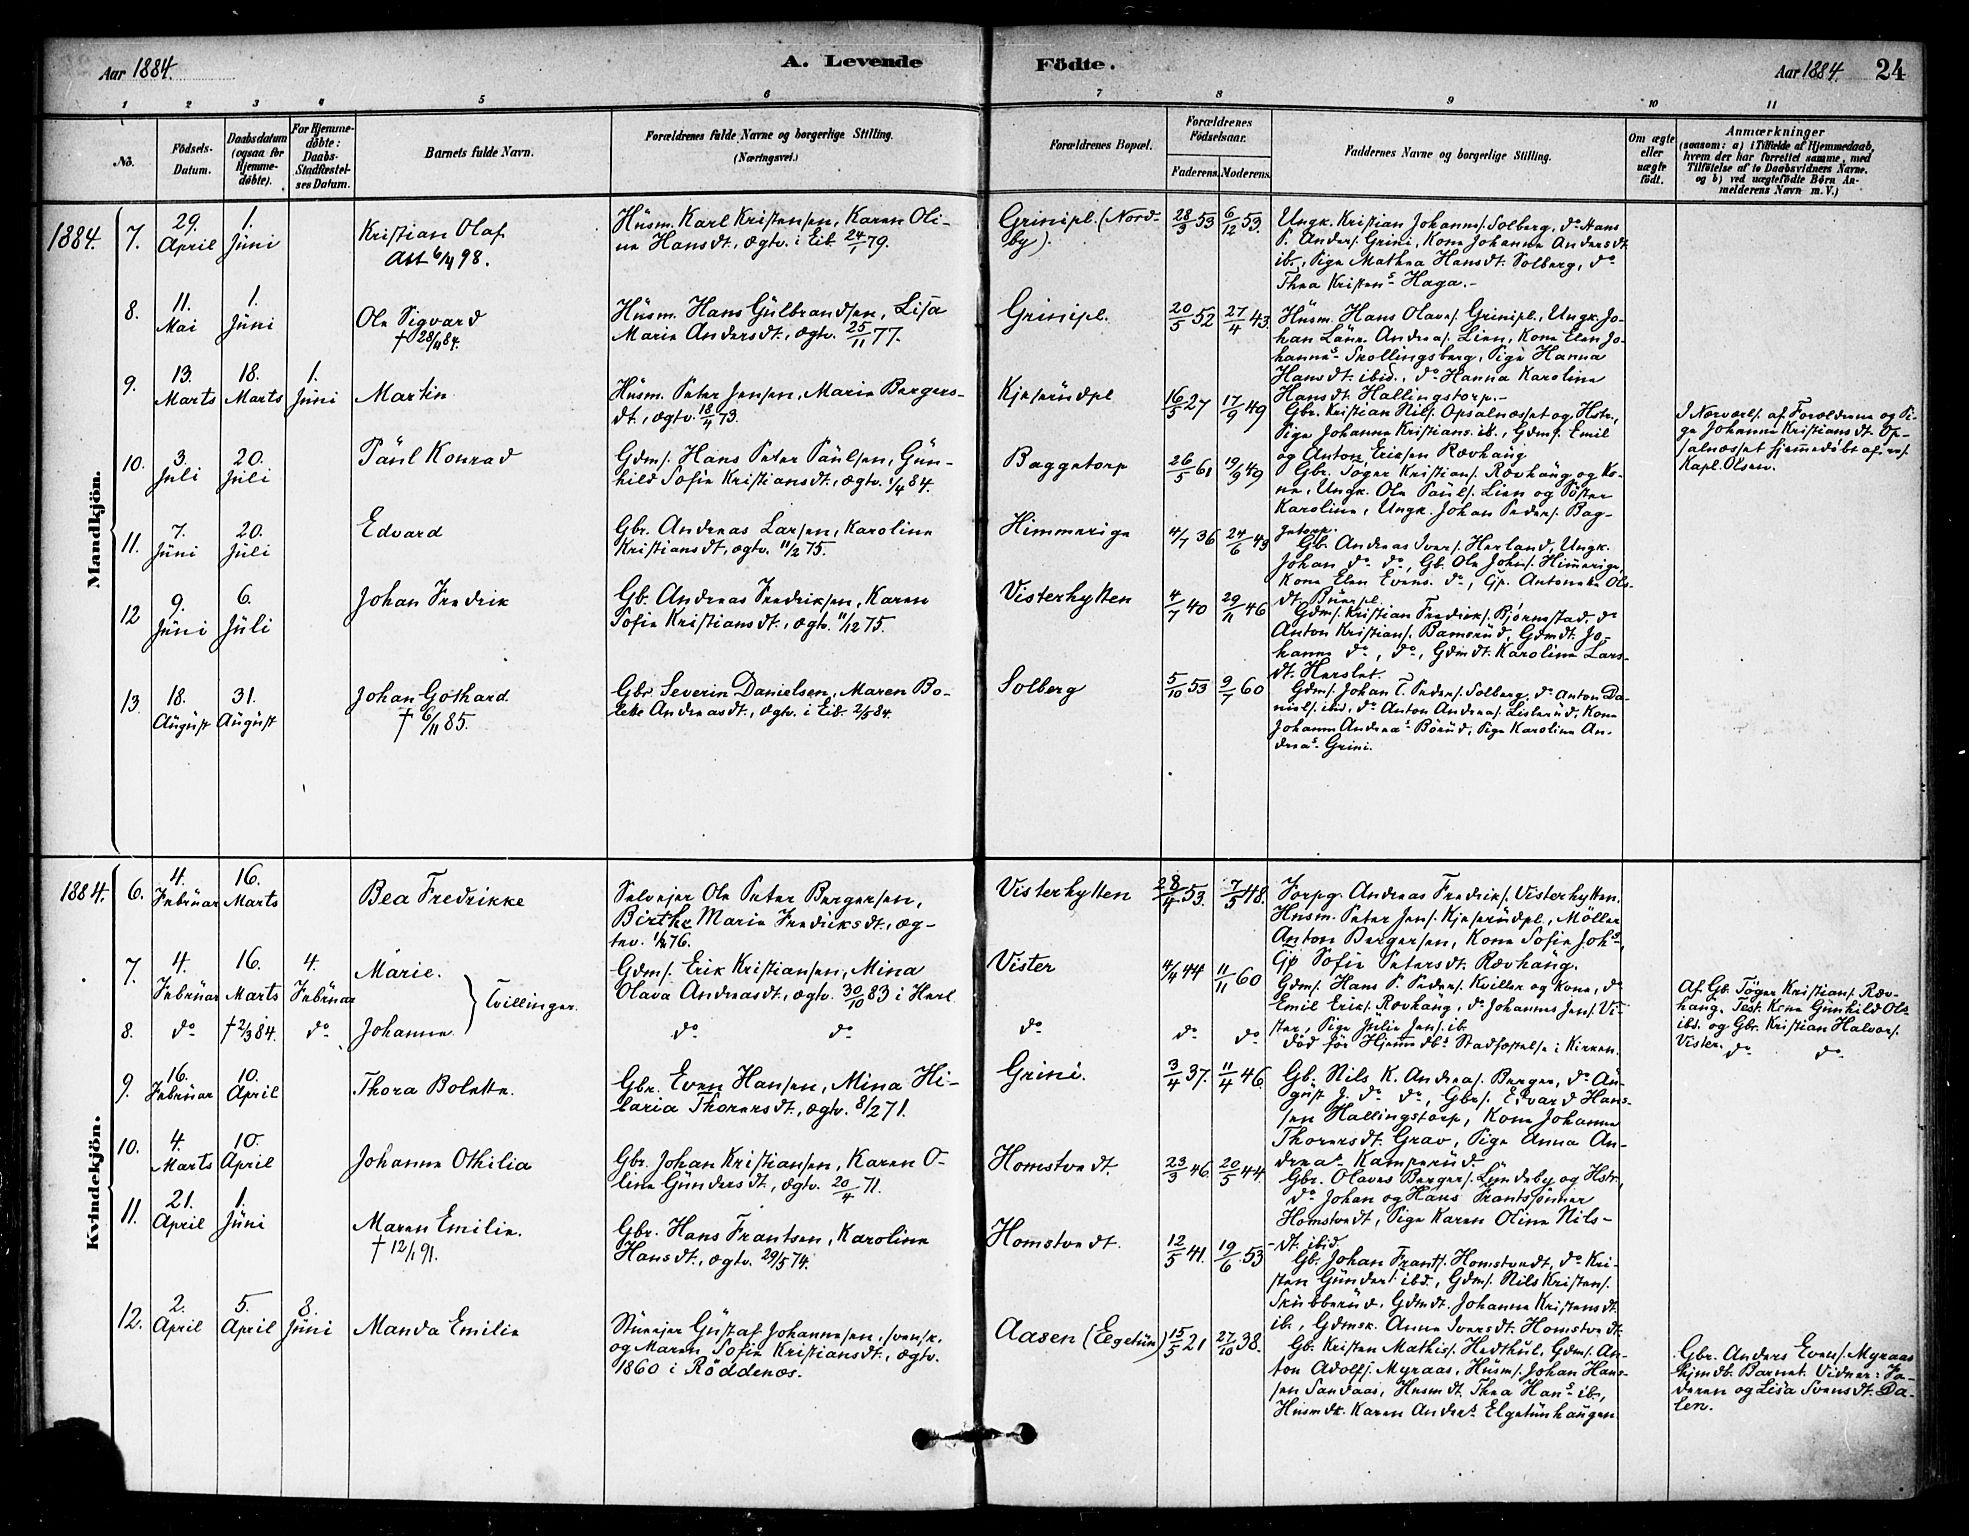 Aar 1884.
A. Levende
Födte.
Aar 1884.
24
1 2 3 4 5 6 7 8 9 10 11
No.
Födsels-
Datum.
Daabsdatum
(ogsaa for
Hjemme-
döbte).
For Hjemme-
döbte:
Daabs-
Stadfæstel-
ses Datum.
Barnets fulde Navn.
Forældrenes fulde Navne og borgerlige Stilling.
(Næringsvei.)
Forældrenes Bopæl.
Forældrenes
Födselsaar.
Faderens. Moderens.
Faddernes Navne og borgerlige Stilling.
Om ægte
eller
uægte
födt.
Anmærkninger
(saasom: a) i Tilfælde af Hjemmedaab,
hvem der har forrettet samme, med
Tilföielse af to Daabsvidners Navne.
og b) ved uægtefödte Börn An-
melderens Navn m. V.)
Mandkjön.
1884.
7.
29.
April
1.
Juni
Kristian Olaf
Att 6/4 98.
Husm. Karl Kristensen, Karen Oli-
ne Hansdt., ægtv. i Eib. 24/1 79.
Grinipl. (Nord-
by).
28/3 53
6/12 53.
Ungk. Kristian Johannes. Solberg, do Hans
P. Anders. Grini, Kone Johanne Andersdt.
ib., Pige Mathea Hansdt. Solberg, do
Thea Kristens Haga.-
8.
11.
Mai
1.
Juni
Ole Sigvard
† 28/11 84.
Husm. Hans Gulbrandsen, Lisa
Marie Andersdt., ægtv. 25/11 77.
Grinipl.
20/5 52
27/4 43.
Husm. Hans Olavs. Grinipl., Ungk. Jo-
han Laur. Andreas. Lien, Kone Elen Jo-
hannes. Skollingsberg, Pige Hanna
Hansdt. ibid., do Hanna Karoline
Hansdt. Hallingstorp.-
9.
13.
Marts
18.
Marts
1.
Juni
Martin
Husm. Peter Jensen, Marie Bergers-
dt., ægtv. 18/4 73.
Kjeserudpl
16/5 27
17/9 49
Gbr. Kristian Nils. Opsalnæsset og Hstr.,
Pige Johanne Kristians. ib., Gdms. Emil
og Anton Eriksen Rævhaug
I Nærværs. af Forældrene og Pi-
ge Johanne Kristiansdt. Op-
salnæsset hjemmedøbt af res.
Kapl. Olsen.
10.
3.
Juli
20.
Juli
Paul Konrad
Gdms. Hans Peter Paulsen, Gun-
hild Sofie Kristiansdt., ægtv. 1/4 84.
Baggetorp
26/5 61
19/9 49
Gbr. Töger Kristians. Rævhaug og Ko-
ne, Ungk. Ole Pauls. Lien og Söster
Karoline, Ungk. Johan Peders. Bag-
getorp.
11.
7.
Juni
20.
Juli
Edvard
Gbr. Andreas Larsen, Karoline
Kristiansdt., ægtv. 11/2 75.
Himmerige
4/7 36
24/6 43
Gb. Andreas Ivers. Herland, Ungk.
Johan do do, Gb. Ole Johs. Himmerige,
Kone Elen Evens. do, Gp. Antonette Ols-
dt. Buerpl.
12
9.
Juni
6.
Juli
Johan Fredrik
Gb. Andreas Fredriksen, Karen
Sofie Kristiansdt., ægtv. 11/12 75.
Visterhytten
4/7 40
29/11 46
Gdms. Kristian Fredriks. Bjørnstad, do
Anton Kristians. Bamsrud, Gdmdt. Jo-
hanne do, do, Gdmdt. Karoline Lars-
dt. Herslet.
13.
18.
August
31.
August
Johan Gothard.
† 6/11 85.
Gbr. Severin Danielsen, Maren Bo-
lette Andreasdt., ægtv. i Eib. 2/5 84.
Solberg
5/10 53
9/7 60
Gdms. Johan T. Peders. Solberg, do Anton Da-
niels. ibid., do Anton Andreas. Listerud, Kone
Johanne Andreas Börud, Pige Karoline An-
dreas. Grini.
Kvindekjön.
1884.
6.
4.
Februar
16.
Marts
Bea Fredrikke
Selveier Ole Peter Bergersen,
Birthe Marie Fredriksdt., æg-
tev. 1/12 76.
Visterhytten
28/4 53.
7/5 48.
Forpg. Andreas Fredriks. Visterhytten.
Husm. Peter Jens. Kjeserudpl., Möller
Anton Bergersen, Kone Sofie Johs.
Gp. Sofie Petersdt. Rævhaug.
7.
4.
Februar
16.
Marts
4.
Februar
Marie.
Tvillinger.
Gdms. Erik Kristiansen, Mina
Olava Andreasdt., ægtv. 30/10 83 i Herl.
Vister
4/4 44
11/11 60
Gdms. Hans P. Peders. Kviller og Kone, do
Emil Eriks. Rævhaug, do Johannes Jens. Vi-
ster, Pige Julie Jens. ib.
Af Gb. Töger Kristians. Ræv-
haug. Test. Kone Gunhild Ols.
ibd. og Gbr. Kristian Halvors.
Vister.
8.
do
† 2/3 84.
do
Johanne
do do
do
do
do
död för Hjemmedbs Stadfæstelse i Kirken.
do do
9.
16.
Februar
10.
April
Thora Bolette.
Gbr. Even Hansen, Mina Hi-
laria Thorersdt., ægtv. 8/2 71.
Grini.
3/4 37.
11/4 46
Gb. Nils K. Andreas. Berger, do Au-
gust J. do do, Gbrs. Edvard Han-
sen Hallingstorp, Kone Johanne
Thorersdt. Grav, Pige Anna An-
dreas. Kamperud.
10.
4.
Marts
10.
April
Johanne Othilia
Gbr. Johan Kristiansen, Karen O-
line Gundersdt., ægtv. 20/4 71.
Homstvedt.
23/3 46.
20/5 44.
Gbr. Olaves Bergers. Lundeby og Hstr.,
do Johan og Hans Frantssönner
Homstvedt, Pige Karen Oline Nils-
dt. ibid.
11.
21.
April
1.
Juni
Maren Emilie.
† 12/1 91.
Gbr. Hans Frantsen, Karoline
Hansdt., ægtv. 29/5 74.
Homstvedt.
12/5 41.
19/6 53
Gb. Johan Frants. Homstvedt, do Kri-
sten Gunders. ibd., Gdms. Nils Kristens.
Skubberud, Gdmdt. Johanne Kristensdt.
ib., Gdmsk. Anne Iversdt. Homstvedt.
12.
2.
April
5.
April
8.
Juni
Manda Emilie
Stueeier Gustaf Johannesen, svensk.
og Maren Sofie Kristiansdt., ægtv.
1860 i Röddenæs.
Aasen (Elgetun)
15/5 21
27/10 38.
Gb. Kristen Mathis. Hedthul, Gdms. An-
ton Adolfs. Myraas, Husms. Johan Han-
sen Sandaas, Husmdt. Thea Hans. ib.,
Husmdt. Karen Anders. Elgetunhaugen
Gbr. Anders Evens. Myraas
hjmdbt. Barnet. Vidner: Fa-
deren og Lisa Svensdt. Da-
len.